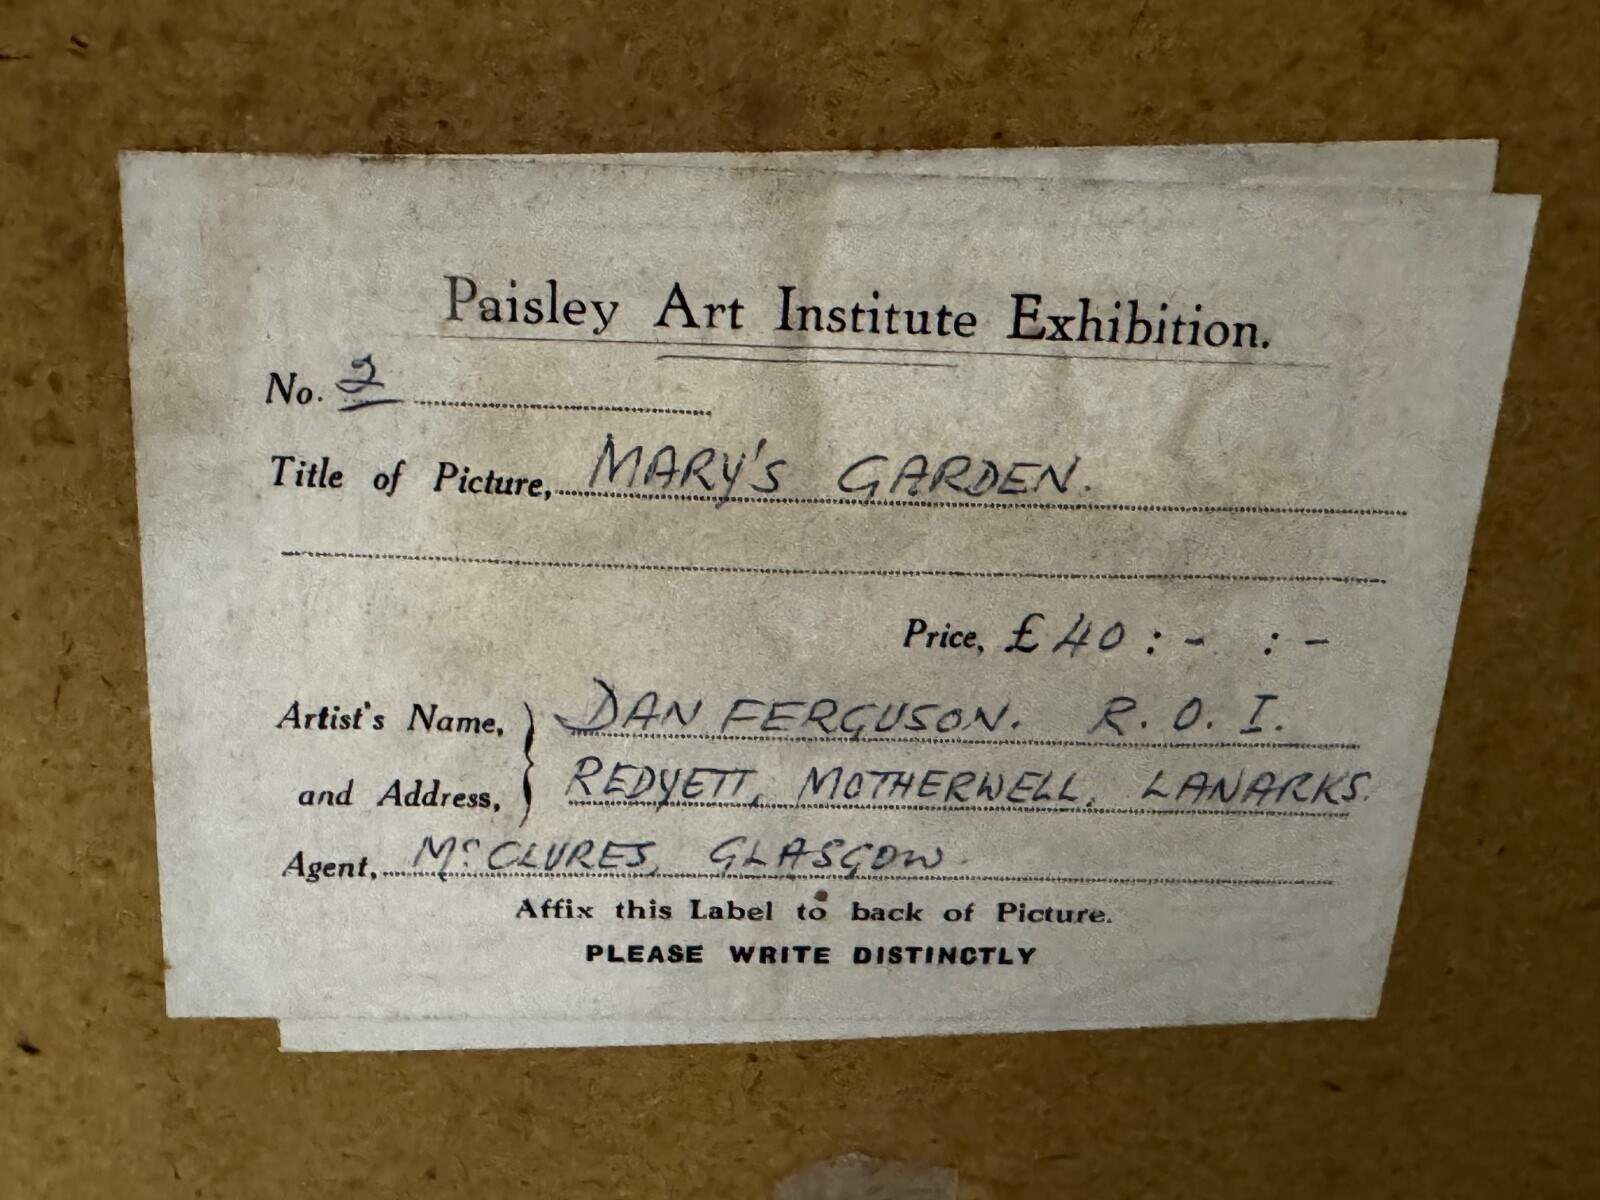 Paisley Art Institute Exhibition.
No. 2
Title of Picture, MARY'S GARDEN.
Price, £40:- :-
Artist's Name, DAN FERGUSON. R.O.I.
and Address, REDYETT, MOTHERWELL, LANARKS.
Agent, McCLURES, GLASGOW.
Affix this Label to back of Picture.
PLEASE WRITE DISTINCTLY